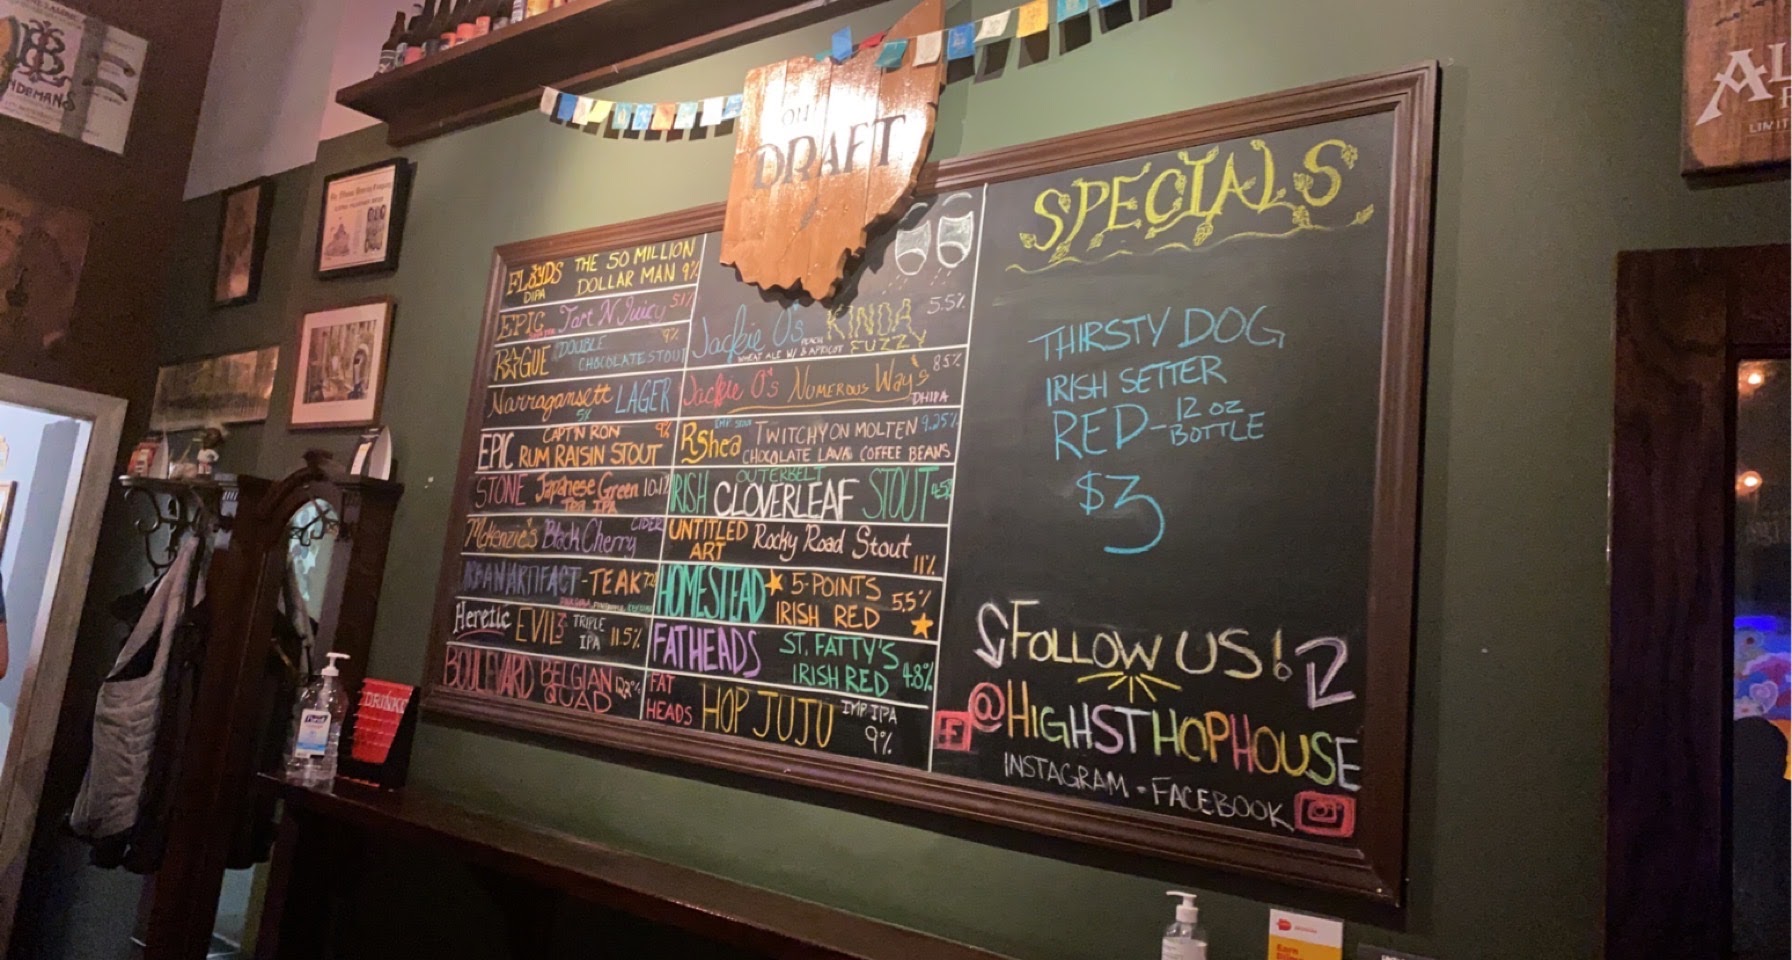 ON
DRAFT
FLOYDS DIPA THE 50 MILLION
DOLLAR MAN 9%
EPIC Tart N Juicy
ROGUE DOUBLE 9%
CHOCOLATE STOUT
Narragansett LAGER
5%
EPIC CAPT'N RON 9%
RUM RAISIN STOUT
STONE Japanese Green
IPA
McKenzie's Black Cherry CIDER
URBAN ARTIFACT - TEAK
Heretic EVIL3 TRIPLE
IPA 11.5%
BOULEVARD BELGIAN
QUAD
Jackie O's KINDA
FUZZY 5.5%
WHEAT ALE W/ PEACH & APRICOT
Jackie O's NUMEROUS WAYS 8.5%
DHIPA
RShea IMP. STOUT TWITCHY ON MOLTEN 9.25%
CHOCOLATE LAVA COFFEE BEANS
OUTERBELT
IRISH CLOVERLEAF STOUT
UNTITLED
ART Rocky Road Stout
11%
HOMESTEAD 5-POINTS
IRISH RED 5.5%
FATHEADS ST. FATTY'S
IRISH RED 4.8%
FAT
HEADS HOP JUJU IMP IPA
9%
SPECIALS
THIRSTY DOG
IRISH SETTER
RED - 12 OZ
BOTTLE
$3
FOLLOW US!
@HIGHSTHOPHOUSE
INSTAGRAM - FACEBOOK
DRINKS